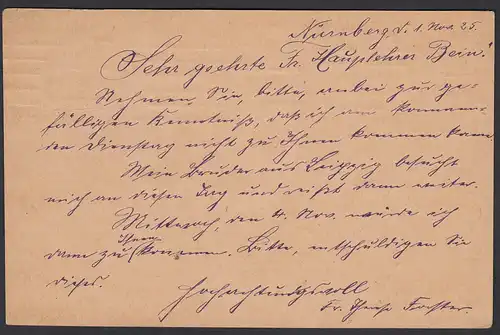 Nürnberg, d. 1. Nov. 25.
Sehr geehrte Fr. Hauptlehrer Bein!
Nehmen Sie, bitte, anbei zur ge-
fälligen Kenntniß, daß ich am kommen-
den Dienstag nicht zu Ihnen kommen kann.
Mein Bruder aus Leipzig besucht
mich an diesen Tag und reißt dann weiter.
Mittwoch, den 4. Nov. würde ich
dann zu Ihnen kommen. Bitte, entschuldigen Sie
dieses.
Hochachtungsvoll
Fr. Forster.